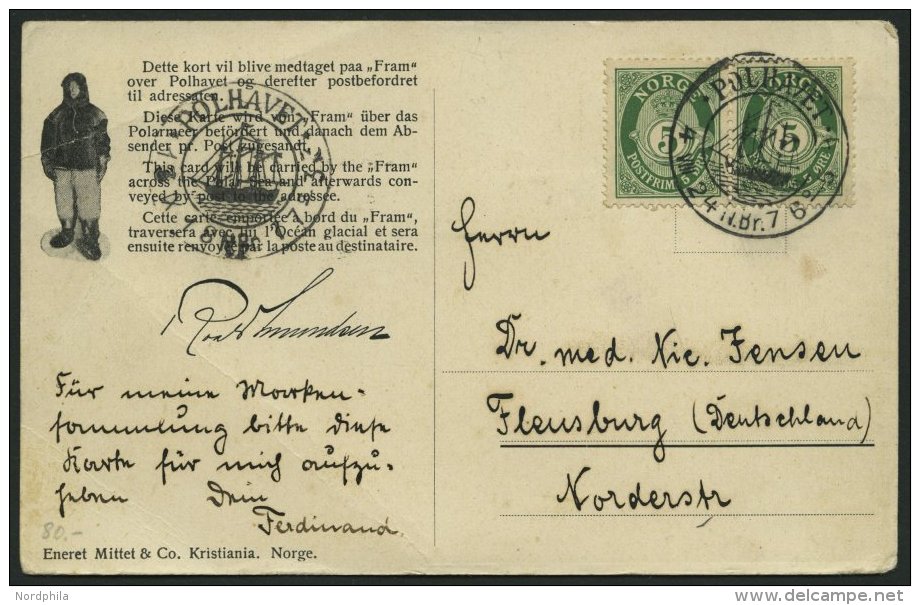 Dette kort vil blive medtaget paa „Fram“
over Polhavet og derefter postbefordret
til adressaten.
Diese Karte wird von „Fram“ über das
Polarmeer befördert und danach dem Ab-
sender pr. Post zugesandt.
This card will be carried by the „Fram“
across the Polar Sea and afterwards con-
veyed by post to the adressee.
Cette carte, emportée a bord du „Fram“,
traversera avec lui l'Océan glacial et sera
ensuite renvoyée par la poste au destinataire.
POLHAVET
Roald Amundsen
Für meine Marken-
sammlung bitte diese
Karte für mich aufzu-
heben Dein
Ferdinand.
80.-
Eneret Mittet & Co. Kristiania. Norge.
NORGE NORGE
5 5
POLHAVET
24 N.Br. 76
Herrn
Dr. med. Nic. Jensen
Flensburg (Deutschland)
Norderstr
Nordphila
delcampe.net